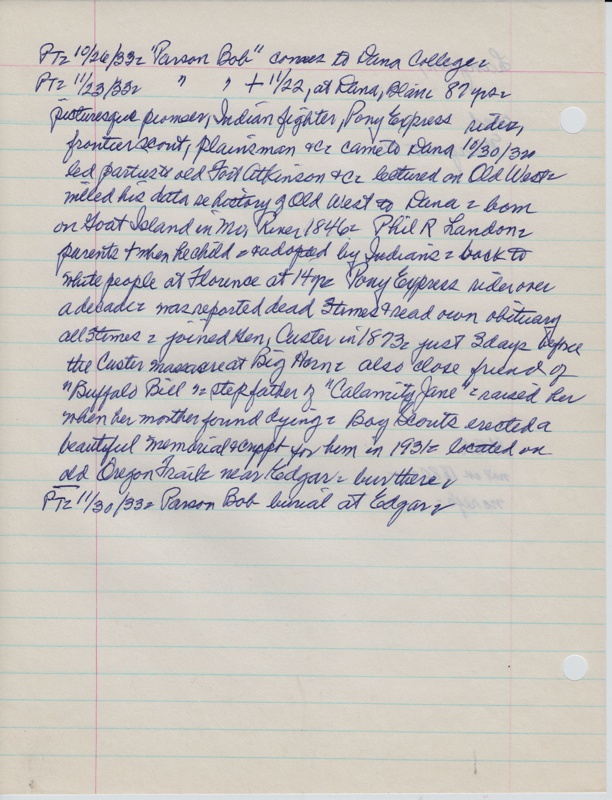 PT= 10/26/33= "Parson Bob" comes to Dana College=
PT= 11/23/33= " " + 11/22, at Dana, Blair 87 yrs=
picturesque pioneer, Indian fighter, Pony Express rider,
frontier scout, plainsman &c= came to Dana 10/30/32
led party to old Fort Atkinson &c= lectured on Old West=
willed his data re history of Old West to Dana= born
on Goat Island in Mo, River 1846= Phil R Landon=
parents + when he child = & adopted by Indians= back to
white people at Florence at 14 yr= Pony Express rider over
a decade= was reported dead 3 times & read own obituary
all 3 times= joined Gen, Custer in 1873= just 3 days before
the Custer massacre at Big Horn= also close friend of
"Buffalo Bill"= stepfather of "Calamity Jane"= raised her
when her mother found dying= Boy Scouts erected a
beautiful memorial & crypt for him in 1931= located on
old Oregon Trail= near Edgar= bur there,
PT= 11/30/33= Parson Bob burial at Edgar=